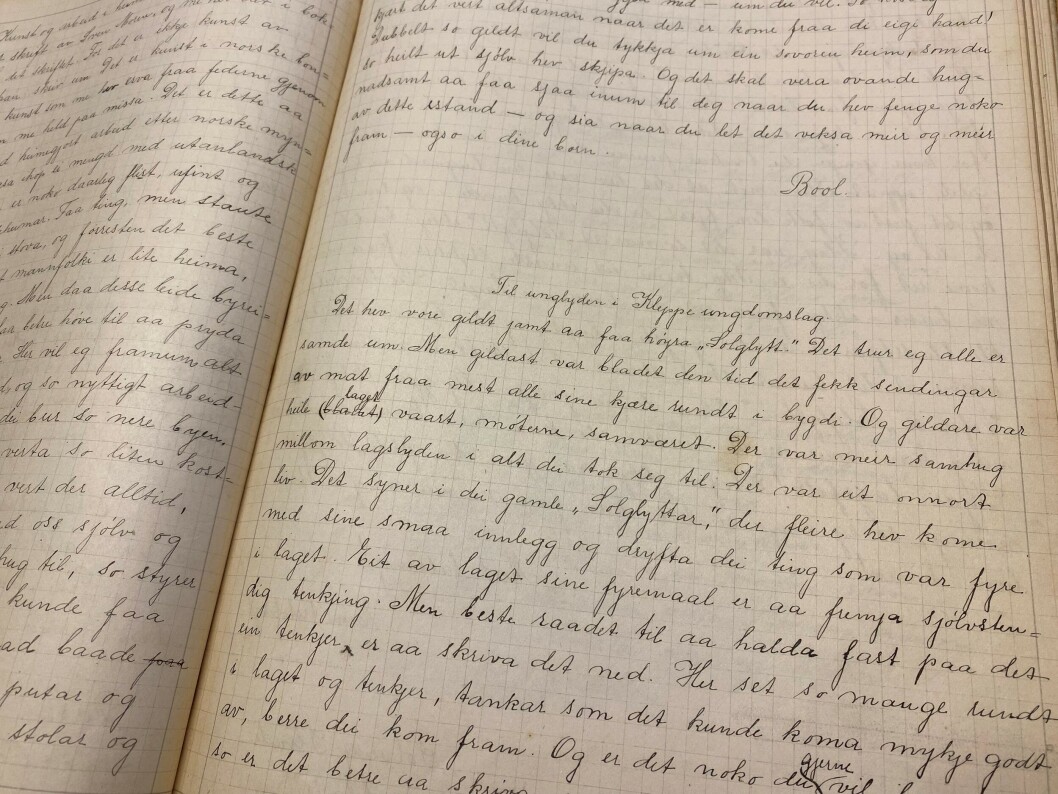 Kunst og arbeid i heim
skrift av Sven Moren, og me
det skriftet. For dit er ikkje kunst av
han skriv um. Det er kunst i norske bon-
kunst som me hev erva fraa federne gjenom
me held paa missa. Det er dette aa
heimegjort arbeid etter norske myn-
mengd med utanlandsk
er noko daarleg flist, ufint og
Faa ting, men staute
stova, og forresten det beste
mannfolki er lite heima,
Men daa desse leide byrei-
betre høve til aa pryda
Her vil eg framum alt
og so nyttigt arbeid-
dei bur so nere byen,
verta so liten kost-
vert der alltid,
oss sjølv og
hug til, so styrer
kunde faa
baade faa
putar og
stolar og
kjært det vert altsaman naar det er kome fraa de eigi hand!
Dubbelt so gildt vil du tykkja um ein sovoren heim, som du
so heilt ut sjølv hev skjipa. Og det skal vera ovande hug-
nadsamt aa faa sjaa inum til deg naar du hev fenge noko
av dette istand – og sia naar du let det veksa meir og meir
fram – ogso i dine born.
Bool.
Til unglyden i Kleppe ungdomslag.
Det hev vore gildt jamt aa faa høyra „Solglytt." Det trur eg alle er
samde um. Men gildast var bladet den tid det fekk sendingar
av mat fraa mest alle sine kjære rundt i bygdi. Og gildare var
heile (bladet) laget vaart, møterne, samværet. Der var meir samhug
millom lagslyden i alt dei tok seg til. Der var eit onnort
liv. Det syner i dei gamle „Solglyttar," der fleire hev kome
med sine smaa innlegg og dryfta dei ting som var fyre
i laget. Eit av laget sine fyremaal er aa fremja sjølvsten-
dig tenkjing. Men beste raadet til aa halda fast paa det
ein tenkjer, er aa skriva det ned. Her set so mange rundt
i laget og tenkjer, tankar som det kunde koma mykje godt
av, berre dei kom fram. Og er det noko du gjerne vil
so er det betre aa skriva